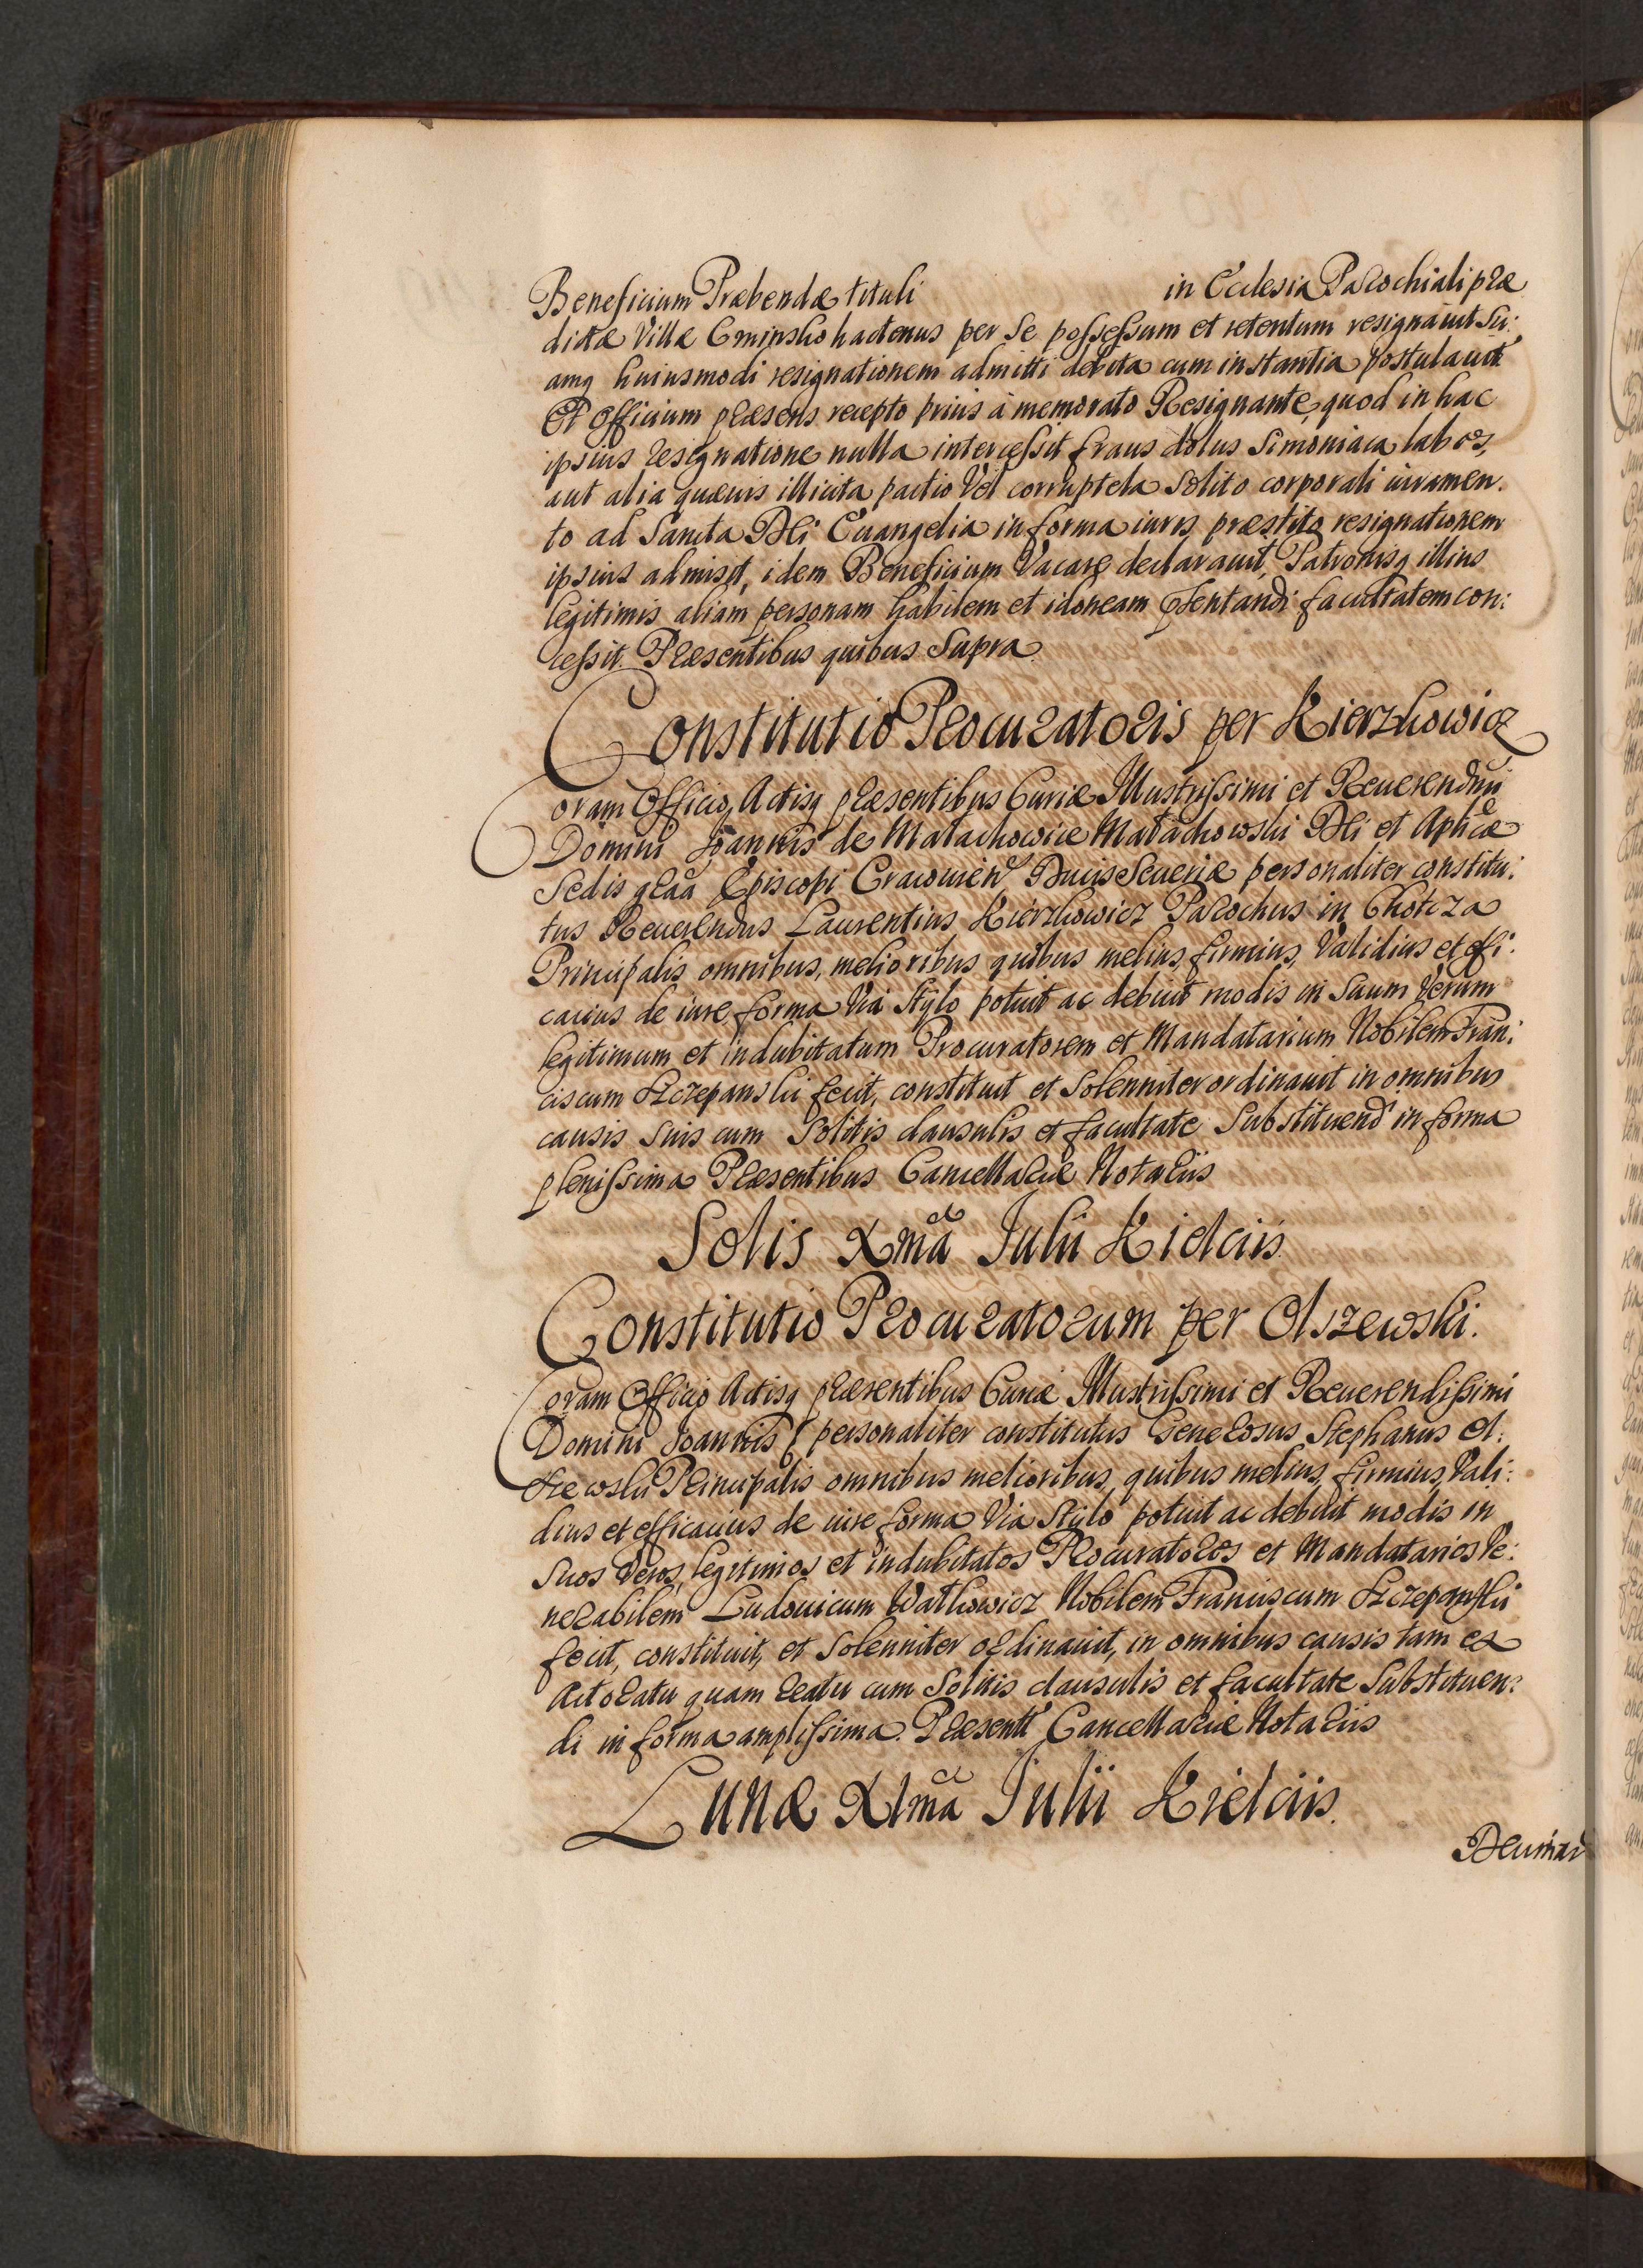 Beneficium Præbendæ tituli in Ecclesia Parochiali præ
dictæ Villæ Cminsko hactenus per se possessum et retentum resignauit su:
amq huiusmodi resignationem admitti debita cum instantia postulauit
Et Officium præsens recepto prius à memorato Resignante, quod in hac
ipsius resignatione nulla intercessit fraus dolus Simoniaca labes,
aut alia quæuis illicita pactio Vel corruptela solito corporali iuramen.
to ad Sancta Dei Euangelia in forma iuris præstito resignationem
ipsius admisit, idem Beneficium Vacare declarauit, Patronisq illius
legitimis aliam personam habilem et idoneam pñtandi facultatem con:
cessit. Præsentibus quibus Supra.
Constitutio Procuratoris per Kierzkowicz
Coram Officio Actisq præsentibus Curiæ Illustrissimi et Reuerendmi
Domini Joannis de Małachowice Małachowski Dei et Aplicæ
Sedis grãa Episcopi Cracouien Ducis Seueriæ personaliter constitu:
tus Reuerendus Laurentius Kierzkowicz Parochus in Chotcza
Principalis omnibus, melioribus quibus melius, firmius, Validius et effi:
cacius de iure forma Via Stylo potuit ac debuit modis in Suum Verum
legitimum et indubitatum Procuratorem et Mandatarium Nobilem Fran:
ciscum Szczepanski fecit, constituit et Solenniter ordinauit in omnibus
causis suis cum Solitis clausulis et facultate Substituend in forma
plenissima Præsentibus Cancellariæ Notariis
Solis Xma Julii Kielciis.
Constitutio Procuratorum per Olszewski.
Coram Officio Actisq præsentibus Curiæ Illustrissimi et Reuerendissimi
Domini Joannis personaliter constitutus Generosus Stephanus Ol:
szewski Principalis omnibus melioribus, quibus melius, firmius, Vali:
dius et efficacius de iure forma Via Stylo potuit ac debuit modis in
suos Veros, legitimos et indubitatos Procuratores et Mandatarios Ve:
nerabilem Ludouicum Watkowicz Nobilem Franciscum Szczepanski
fecit, constituit, et Solenniter ordinauit, in omnibus causis tam ex
Actoratu quam reatu cum Solitis clausulis et facultate Substituen:
di in forma amplissima. Præsentt Cancellariæ Notariis
Lunæ XIma Julii Kielciis.